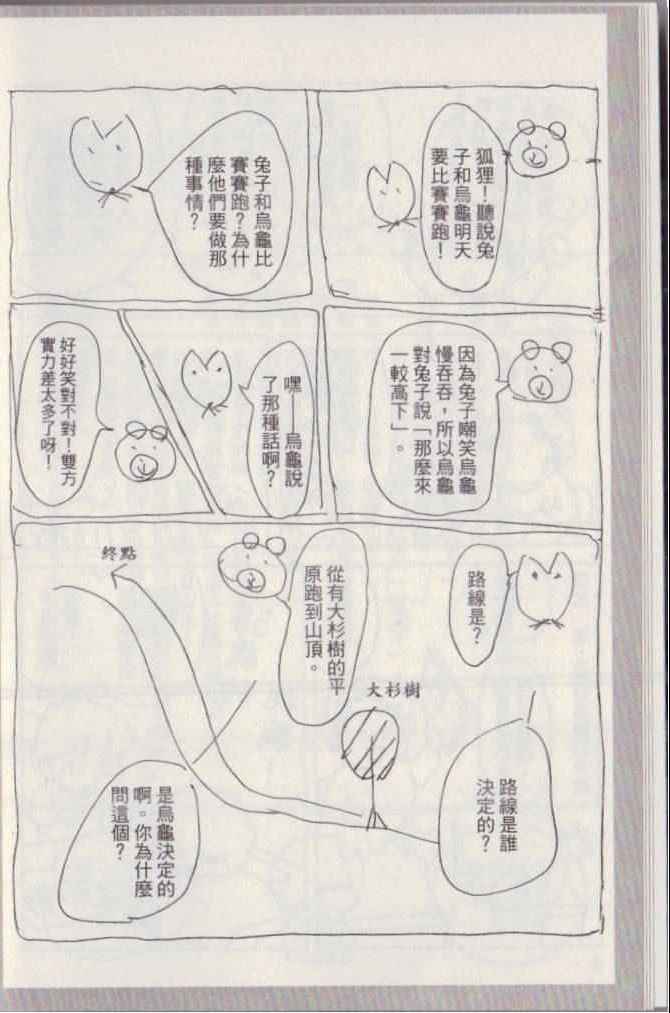 狐狸！聽說兔
子和烏龜明天
要比賽賽跑！
兔子和烏龜比
賽賽跑？為什
麼他們要做那
種事情？
因為兔子嘲笑烏龜
慢吞吞，所以烏龜
對兔子說「那麼來
一較高下」。
嘿——烏龜說
了那種話啊？
好好笑對不對！雙方
實力差太多了呀！
路線是？
從有大杉樹的平
原跑到山頂。
終點
大杉樹
路線是誰
決定的？
是烏龜決定的
啊。你為什麼
問這個？